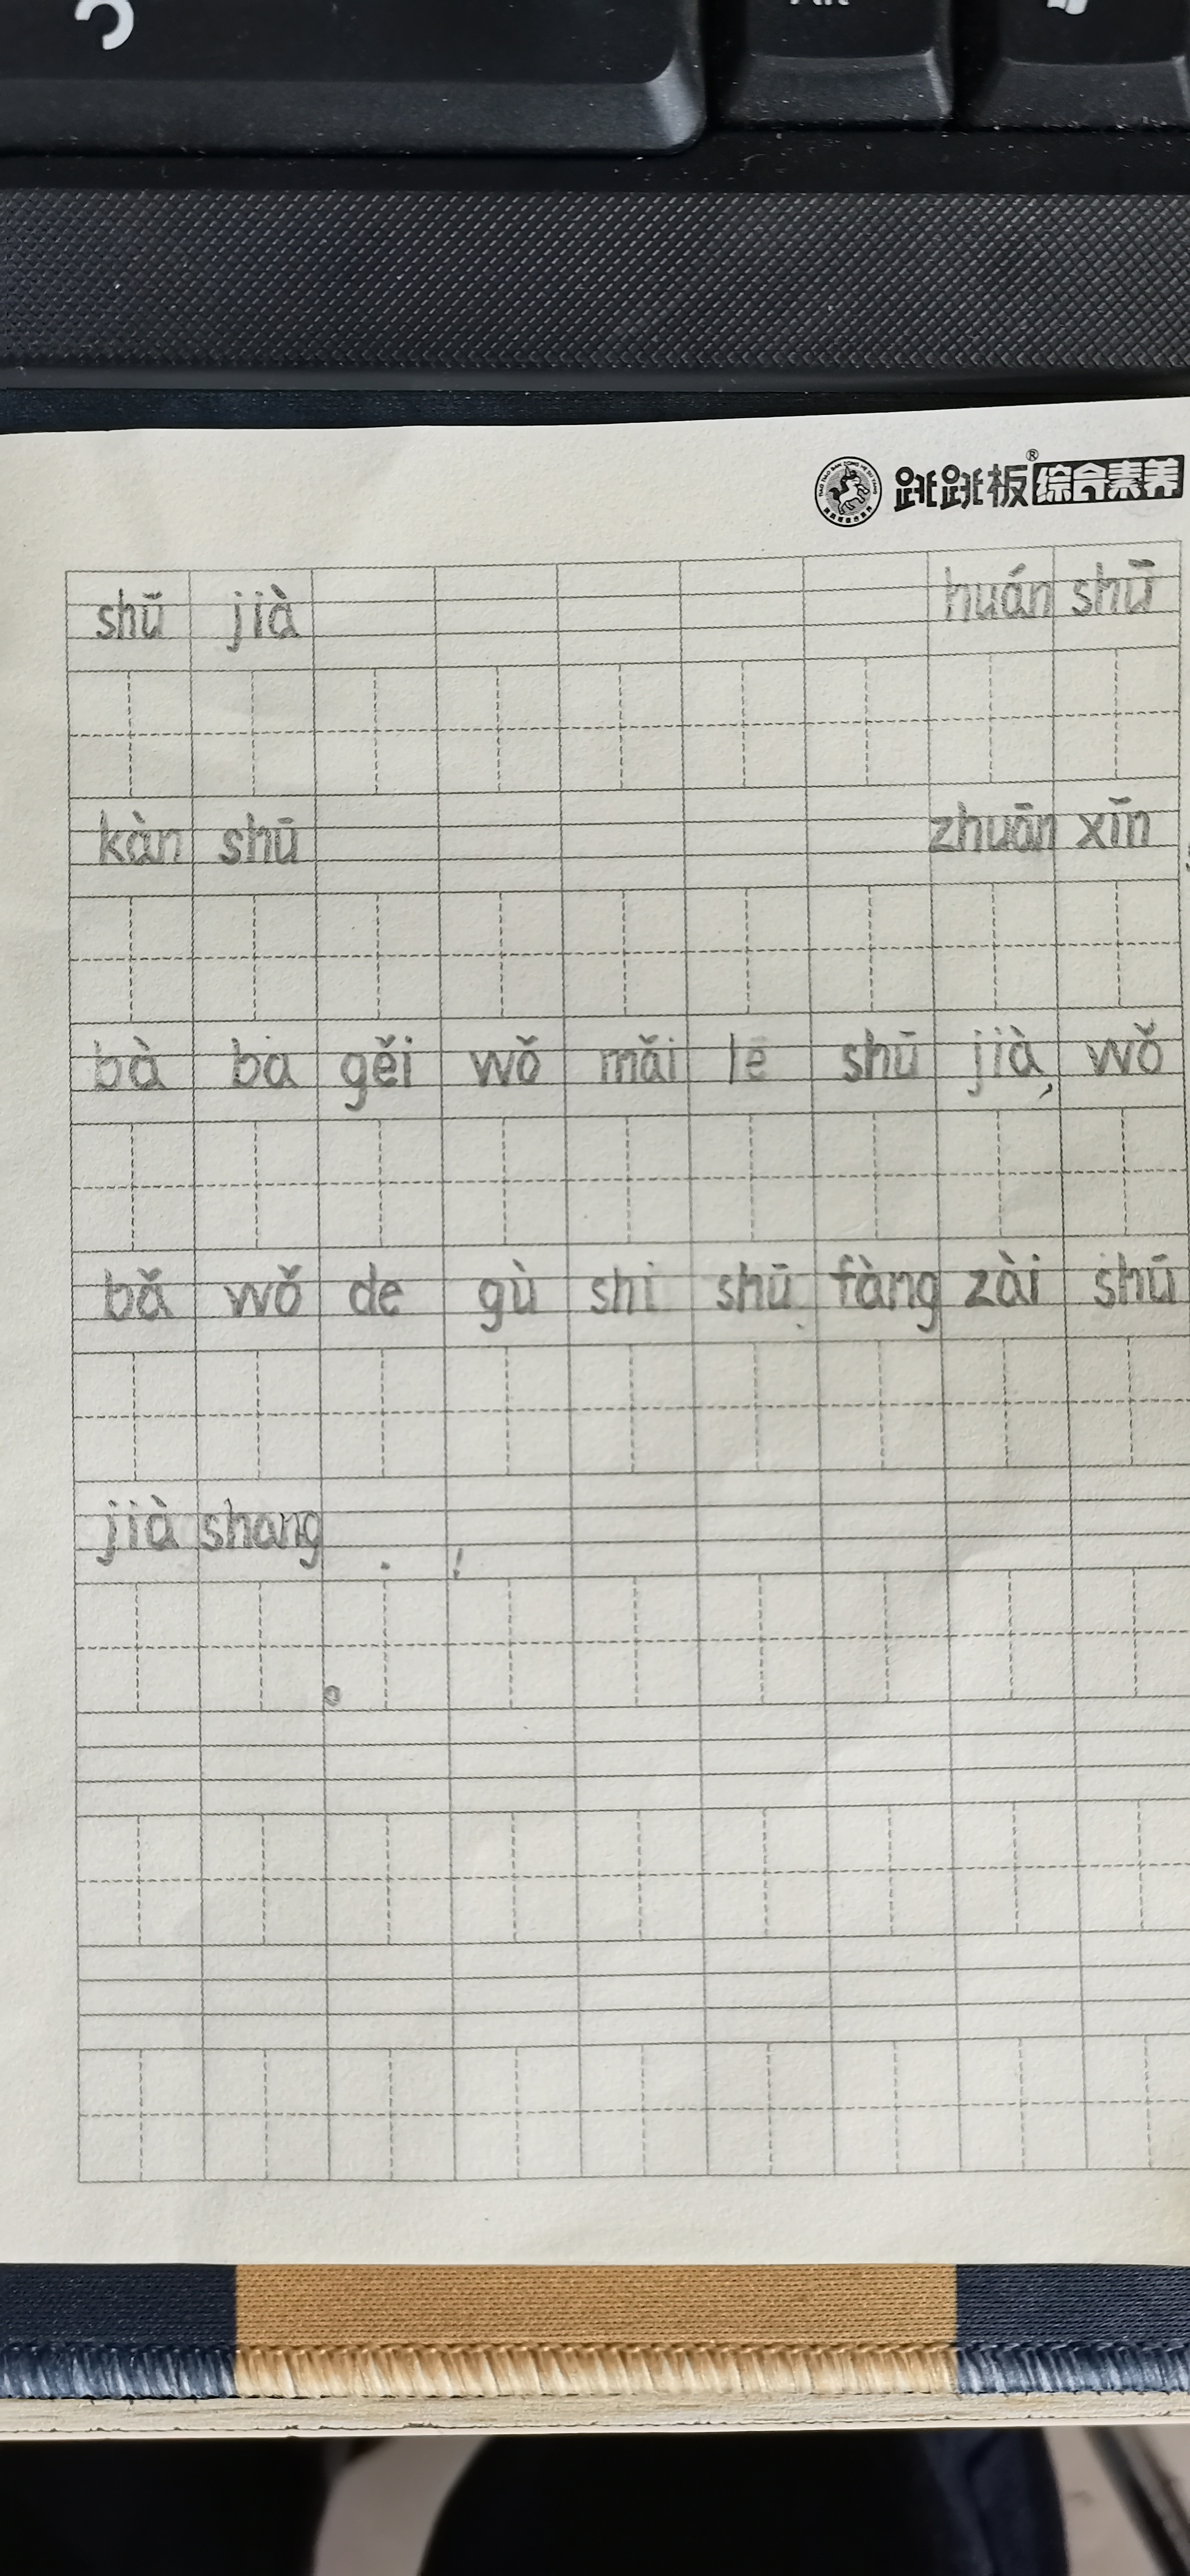 跳跳板®综合素养
shǔ jià huán shū
kàn shū zhuān xīn
bà ba gěi wǒ mǎi le shū jià, wǒ
bǎ wǒ de gù shi shū fàng zài shū
jià shang
。